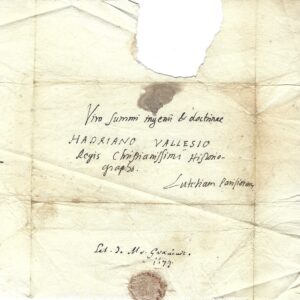 Viro summi ingenii & doctrinae
HADRIANO VALLESIO
Regis Christianissimi Histrio-
grapho.
Lutetiam Parisiorum
Let. de Mr.
1677